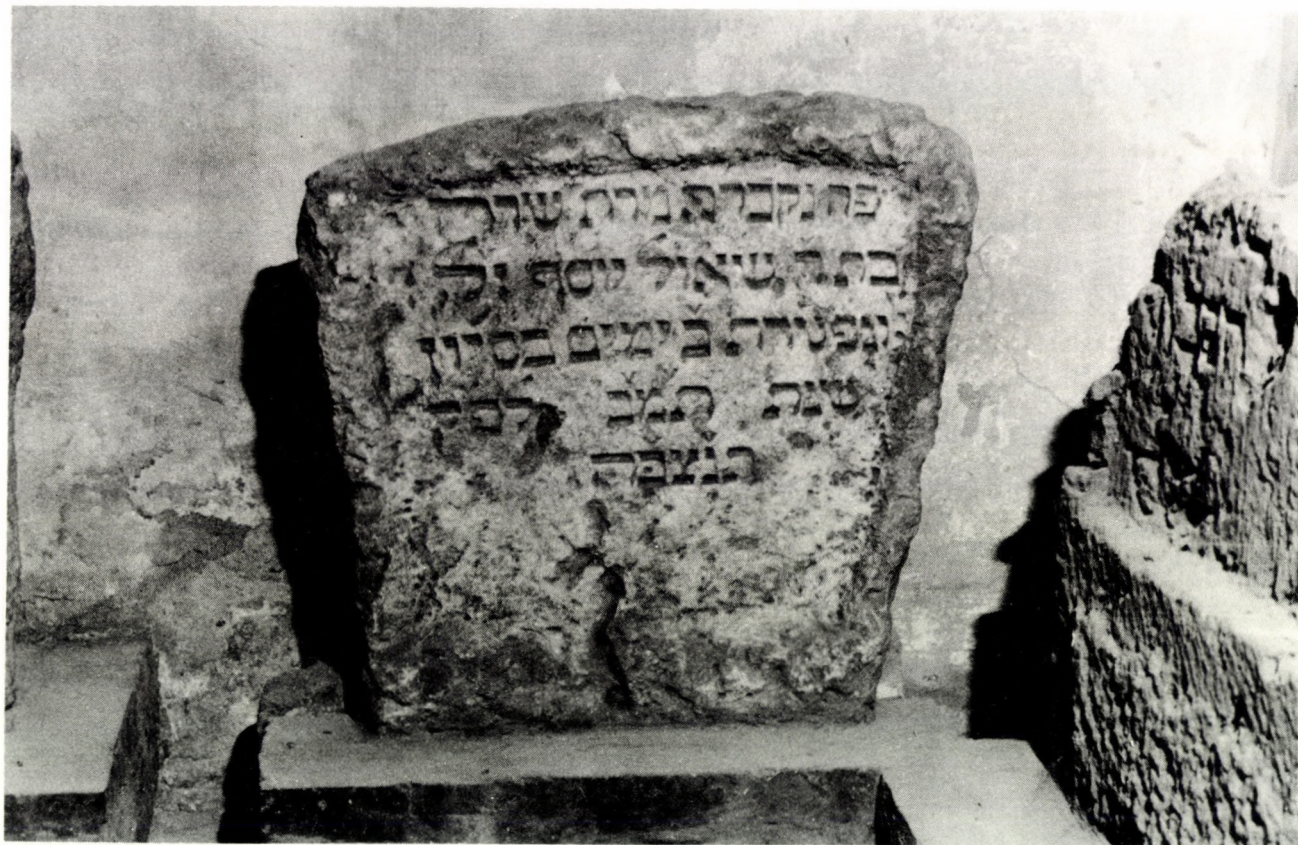 פה נקברה מרת שרה
בת ר שאול יוסף זל
נפטרה ב ימים בסיון
שנת תמב לפק
תנצבה